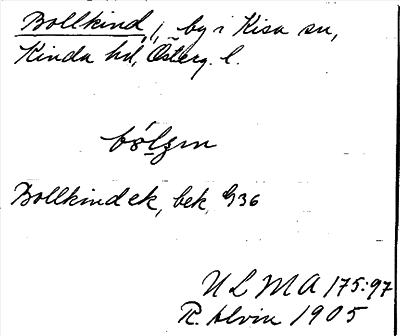 Bollkind, by i Kisa sn,
Kinda hd, Österg. l.
Bollkind ek, bek. 936
ULMA 175:97
R. Alvin 1905